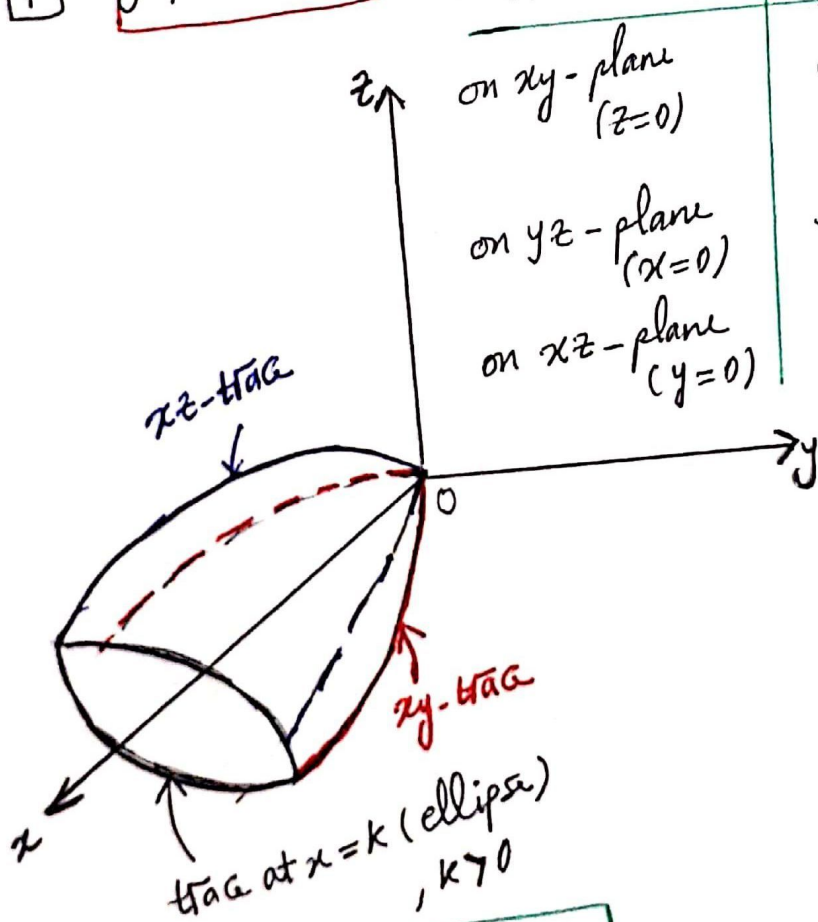 z
on xy-plane
(z=0)
on yz-plane
(x=0)
on xz-plane
(y=0)
xz-trace
y
0
xy-trace
x
trace at x=k (ellipse)
, k>0